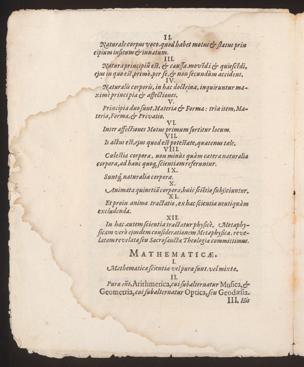 II.
Naturale corpus voco, quod habet motus & status prin
cipium insitum & innatum.
III.
Natura principiũ est, & caussa movẽdi & quiescẽdi,
ejus in quo est, primò, per se, & non secundùm accidens.
IV.
Naturalis corporis, in hac doctrina, inquiruntur ma-
ximè principia & affectiones.
V.
Principia duo sunt, Materia & Forma: tria item, Ma-
teria, Forma, & Privatio.
VI.
Inter affectiones Motus primum sortitur locum.
VII.
Is actus est, ejus quod est potestate, quatenus tale.
VIII.
Cælestia corpora, non minùs quàm cætera naturalia
corpora, ad hanc quoq, scientiam referuntur.
IX.
Suntq́, naturalia corpora.
X.
Animata quinetiã corpora, huic scietiæ subjiciuntur.
XI.
Et proin anima tractatio, ex hac scientia neutiquàm
excludenda.
XII.
In hac autem scientia tractatur physicè, Metaphy-
sicam verò ejusdem considerationem Metaphysicæ, reve-
latam revelatæ seu Sacrosanctæ Theologiæ committimus.
MATHEMATICÆ.
I.
Mathematicæ scientiæ vel puræ sunt, vel mixtæ.
II.
Puræ sũt, Arithmetica, cui subalternatur Musica, &
Geometria, cui subalternatur Optica, seu Geodæsia.
III. His